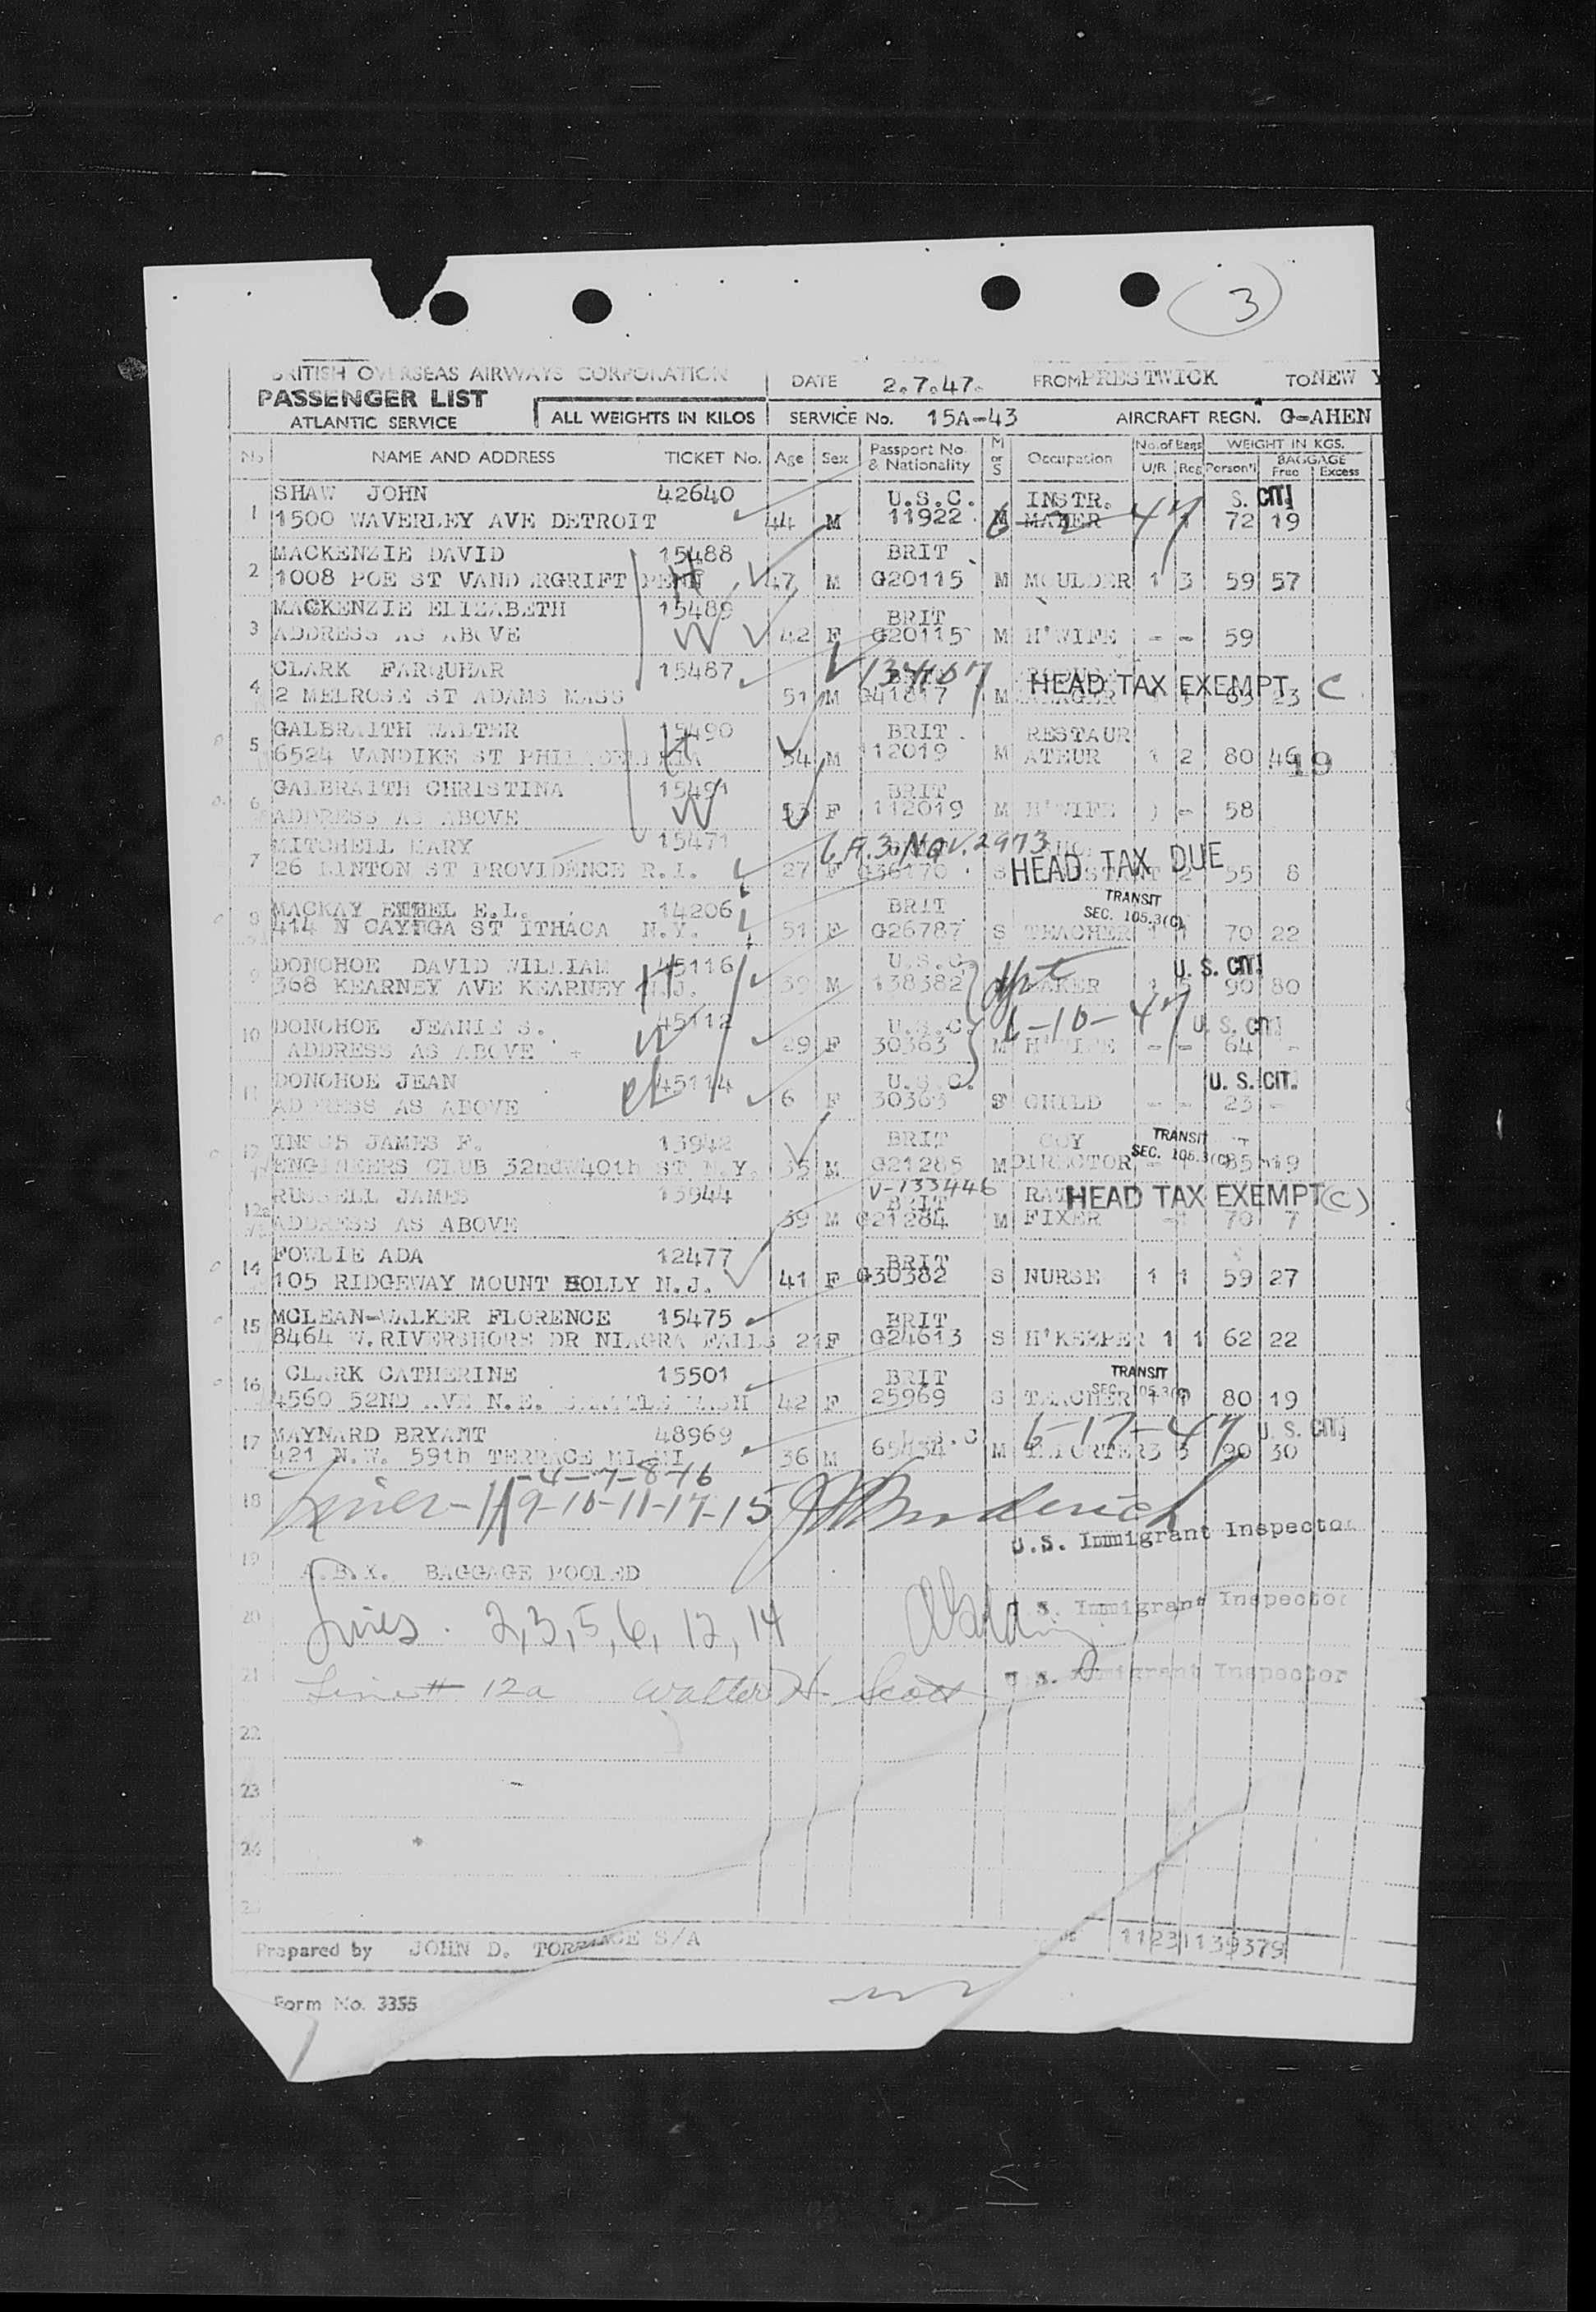 3
BRITISH OVERSEAS AIRWAYS CORPORATION
PASSENGER LIST
ATLANTIC SERVICE
ALL WEIGHTS IN KILOS
DATE 2.7.47. FROM PRESTWICK TO NEW Y
SERVICE No. 15A-43 AIRCRAFT REGN. G-AHEN
No NAME AND ADDRESS TICKET No. Age Sex Passport No. & Nationality M or S Occupation No. of Bags U/R Reg WEIGHT IN KGS. Person'l BAGGAGE Free Excess
SHAW JOHN 42640 U.S.C. INSTR. S. CIT.
1 1500 WAVERLEY AVE DETROIT 44 M 11922 M MAKER 72 19
6-2-47
MACKENZIE DAVID 15488 BRIT
2 1008 POE ST VAND RGRIFT PENN H 47 M G20115 M MOULDER 1 3 59 57
MACKENZIE ELIZABETH 15489 BRIT
3 ADDRESS AS ABOVE W 42 F G20115 M H'WIFE - - 59
CLARK FARQUHAR 15487 V134107 HEAD TAX EXEMPT C
4 2 MELROSE ST ADAMS MASS 51 M G41817 M 23
GALBRAITH WALTER 15490 BRIT RESTAUR
5 6524 VANDIKE ST PHILADELPHIA H 54 M 112019 M ATEUR 1 2 80 46 19
GALBRAITH CHRISTINA 15491 BRIT
6 ADDRESS AS ABOVE W 53 F 112019 M H'WIFE - 58
MITCHELL MARY 15471 HEAD TAX DUE
7 26 LINTON ST PROVIDENCE R.I. 27 F G36170 S 2 55 8
MACKAY ETHEL E.L. 14206 BRIT TRANSIT SEC. 105.3(C)
8 414 N CAYUGA ST ITHACA N.Y. 51 F G26787 S TEACHER 1 1 70 22
DONOHOE DAVID WILLIAM 45116 U.S.C. U. S. CIT.
9 368 KEARNEY AVE KEARNEY N.J. H 39 M 138382 90 80
DONOHOE JEANIE S. 45112 U.S.C. 6-10-47 U. S. CIT.
10 ADDRESS AS ABOVE W 29 F 30363 M H'WIFE - - 64 -
DONOHOE JEAN 45114 U.S.C. U. S. CIT.
11 ADDRESS AS ABOVE 6 F 30363 S CHILD - - 23 -
JAMES F. 13942 BRIT COY TRANSIT SEC. 105.3(C)
12 ENGINEERS CLUB 32ndW40th ST N.Y. 35 M G21285 M DIRECTOR - 1 85 19
RUSSELL JAMES 13944 V-133446 BRIT HEAD TAX EXEMPT (C)
12a ADDRESS AS ABOVE 39 M G21284 M FIXER 70 7
FOWLIE ADA 12477 BRIT
14 105 RIDGEWAY MOUNT HOLLY N.J. 41 F G30382 S NURSE 1 1 59 27
MCLEAN-WALKER FLORENCE 15475 BRIT
15 8464 W.RIVERSHORE DR NIAGRA FALLS 21 F G24613 S H'KEEPER 1 1 62 22
CLARK CATHERINE 15501 BRIT TRANSIT SEC. 105.3(C)
16 4560 52ND AVE N.E. SEATTLE WASH 42 F 25969 S TEACHER 1 1 80 19
MAYNARD BRYANT 48969 U.S.C. 6-17-47 U. S. CIT.
17 421 N.W. 59th TERRACE MIAMI 36 M M 3 3 90 30
-4-7-8-16
18 Lines-1 9-10-11-17-15
U.S. Immigrant Inspector
19 A.B.X. BAGGAGE POOLED
20 Lines. 2,3,5,6, 12, 14 U.S. Immigrant Inspector
21 Line # 12a Walter H. Scott U.S. Immigrant Inspector
22
23
24
25
Prepared by JOHN D. TORRANCE S/A 11231139379
Form No. 3355